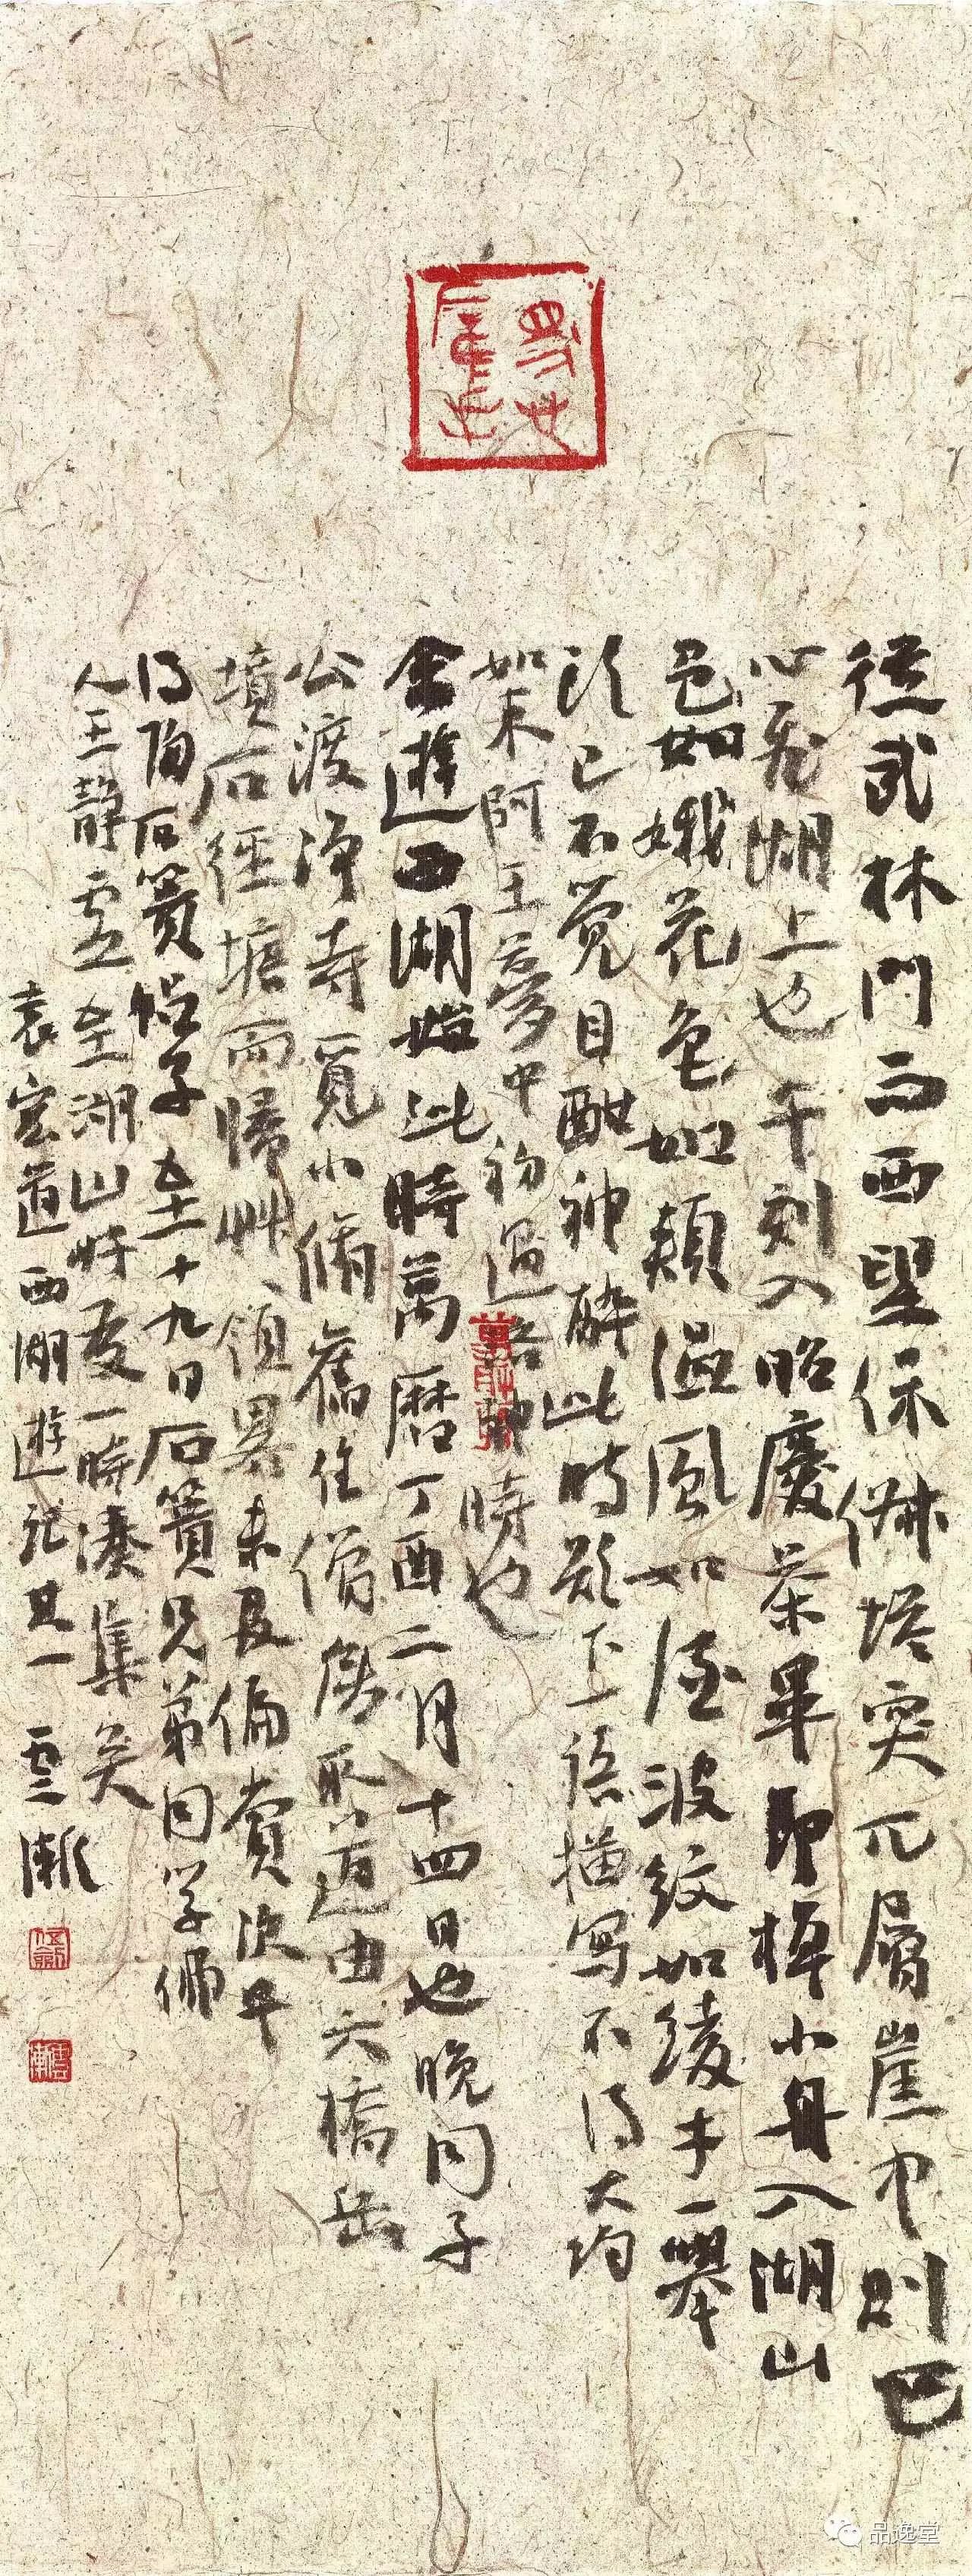 從武林門而西望保俶塔突兀層崖中則已
心飛湖上也午刻入昭慶茶畢即棹小舟入湖山
色如娥花色如頰溫風如酒波紋如綾才一舉
頭已不覺目酣神醉此时欲下一語描写不得大约
如東阿王夢中初遇洛神時也
余遊西湖始此時萬曆丁酉二月十四日也晚同子
公渡净寺覓小脩舊住僧房取道由六橋岳
墳石徑塘而歸草領畧未及徧賞次早
得陶石簣帖子至十九日石簣兄弟同学佛
人王静虛至湖山好友一時湊集矣
袁宏道西湖遊記其一 雲漸
品逸堂